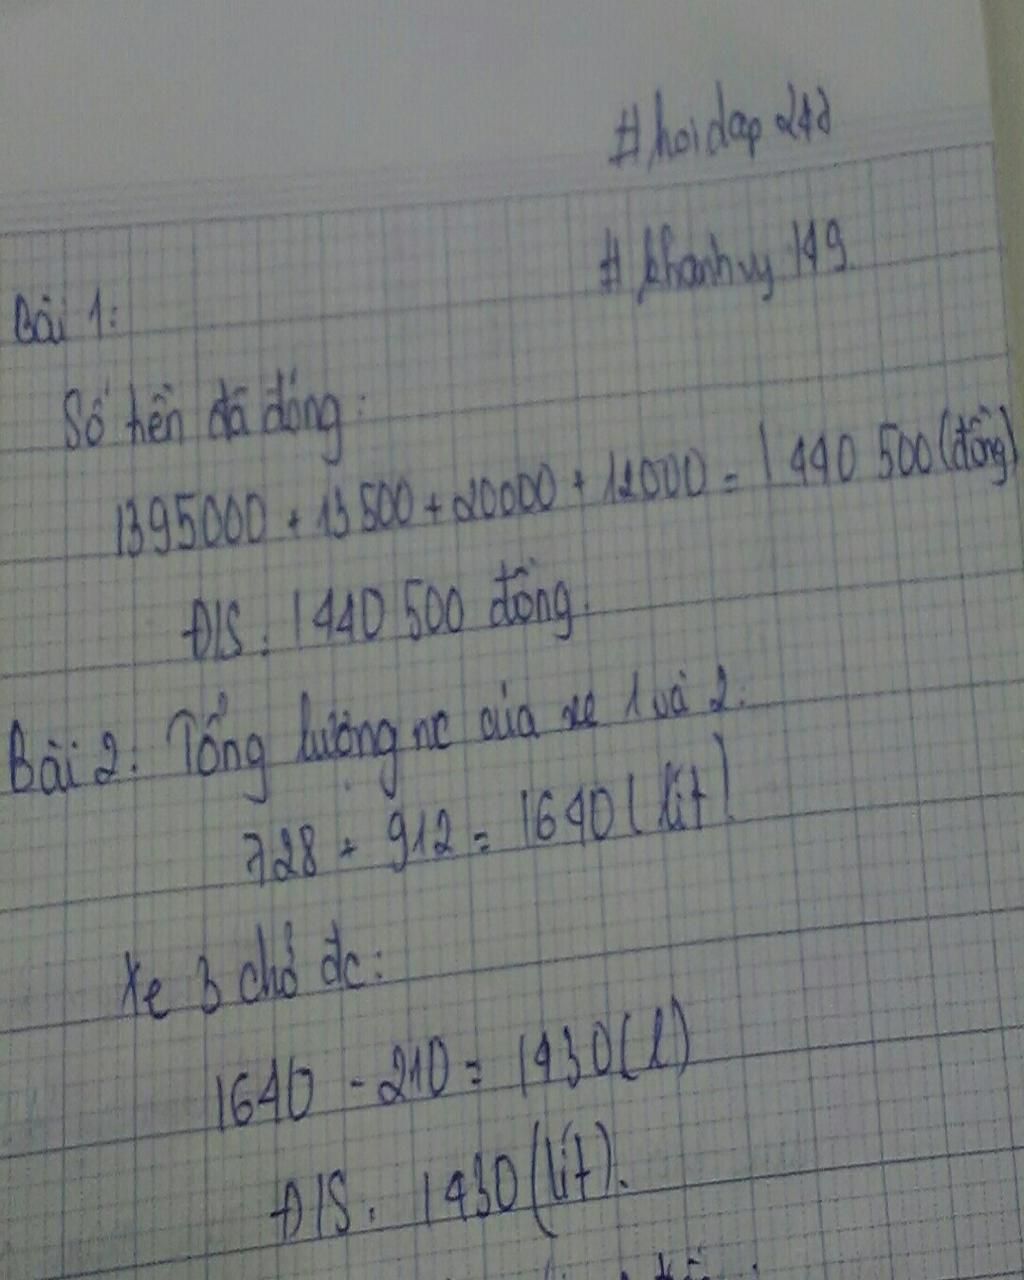 #hoidap 247
#khanhuy 149.
Bài 1:
Số tiền đã đóng:
1395000 + 13500 + 20000 + 12000 = 1 440 500 (đồng)
Đ/S: 1440 500 đồng.
Bài 2: Tổng lượng nc của xe 1 và 2:
728 + 912 = 1640 (lít)
Xe 3 chở đc:
1640 - 210 = 1430 (l)
Đ/S: 1430 (lít).